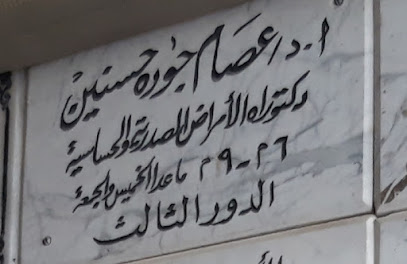 ا.د/ عصام جوده حسنين
دكتوراه الأمراض الصدرية والحساسية
٦م - ٩م ماعدا الخميس والجمعة
الدور الثالث